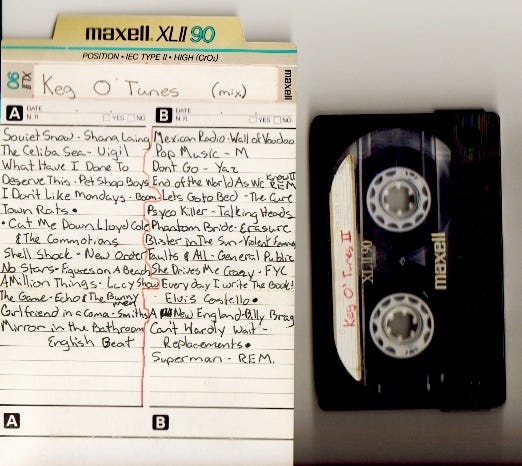 maxell XLII 90
POSITION • IEC TYPE II • HIGH (CrO2)
XLII 90
Keg O' Tunes (mix)
maxell
A DATE
N.R. YES NO
B DATE
N.R. YES NO
Soviet Snow - Shona Laing
The Celiba Sea - Vigil
What Have I Done To
Deserve This - Pet Shop Boys
I Don't Like Mondays - Boom
Town Rats •
• Cut Me Down Lloyd Cole
& The Commotions
Shell Shock - New Order
No Stars - Figures on A Beach
A Million Things - Lucy Show
The Game - Echo & The Bunny
men
Girlfriend in a Coma - Smiths
Mirror in the Bathroom
English Beat
Mexican Radio - Wall of Voodoo
Pop Music - M
Don't Go - Yaz
End of the World As We Know It
REM
Lets Go to Bed - The Cure
Psyco Killer - Talking Heads
Phantom Bride - Erasure
Blister in The Sun - Violent Femmes
Faults & All - General Public
She Drives Me Crazy - FYC
Every day I Write The Book!
Elvis Costello •
A New England - Billy Brag
Can't Hardly Wait -
Replacements •
Superman - REM.
A
B
Keg O' Tunes II
XLII 90
maxell